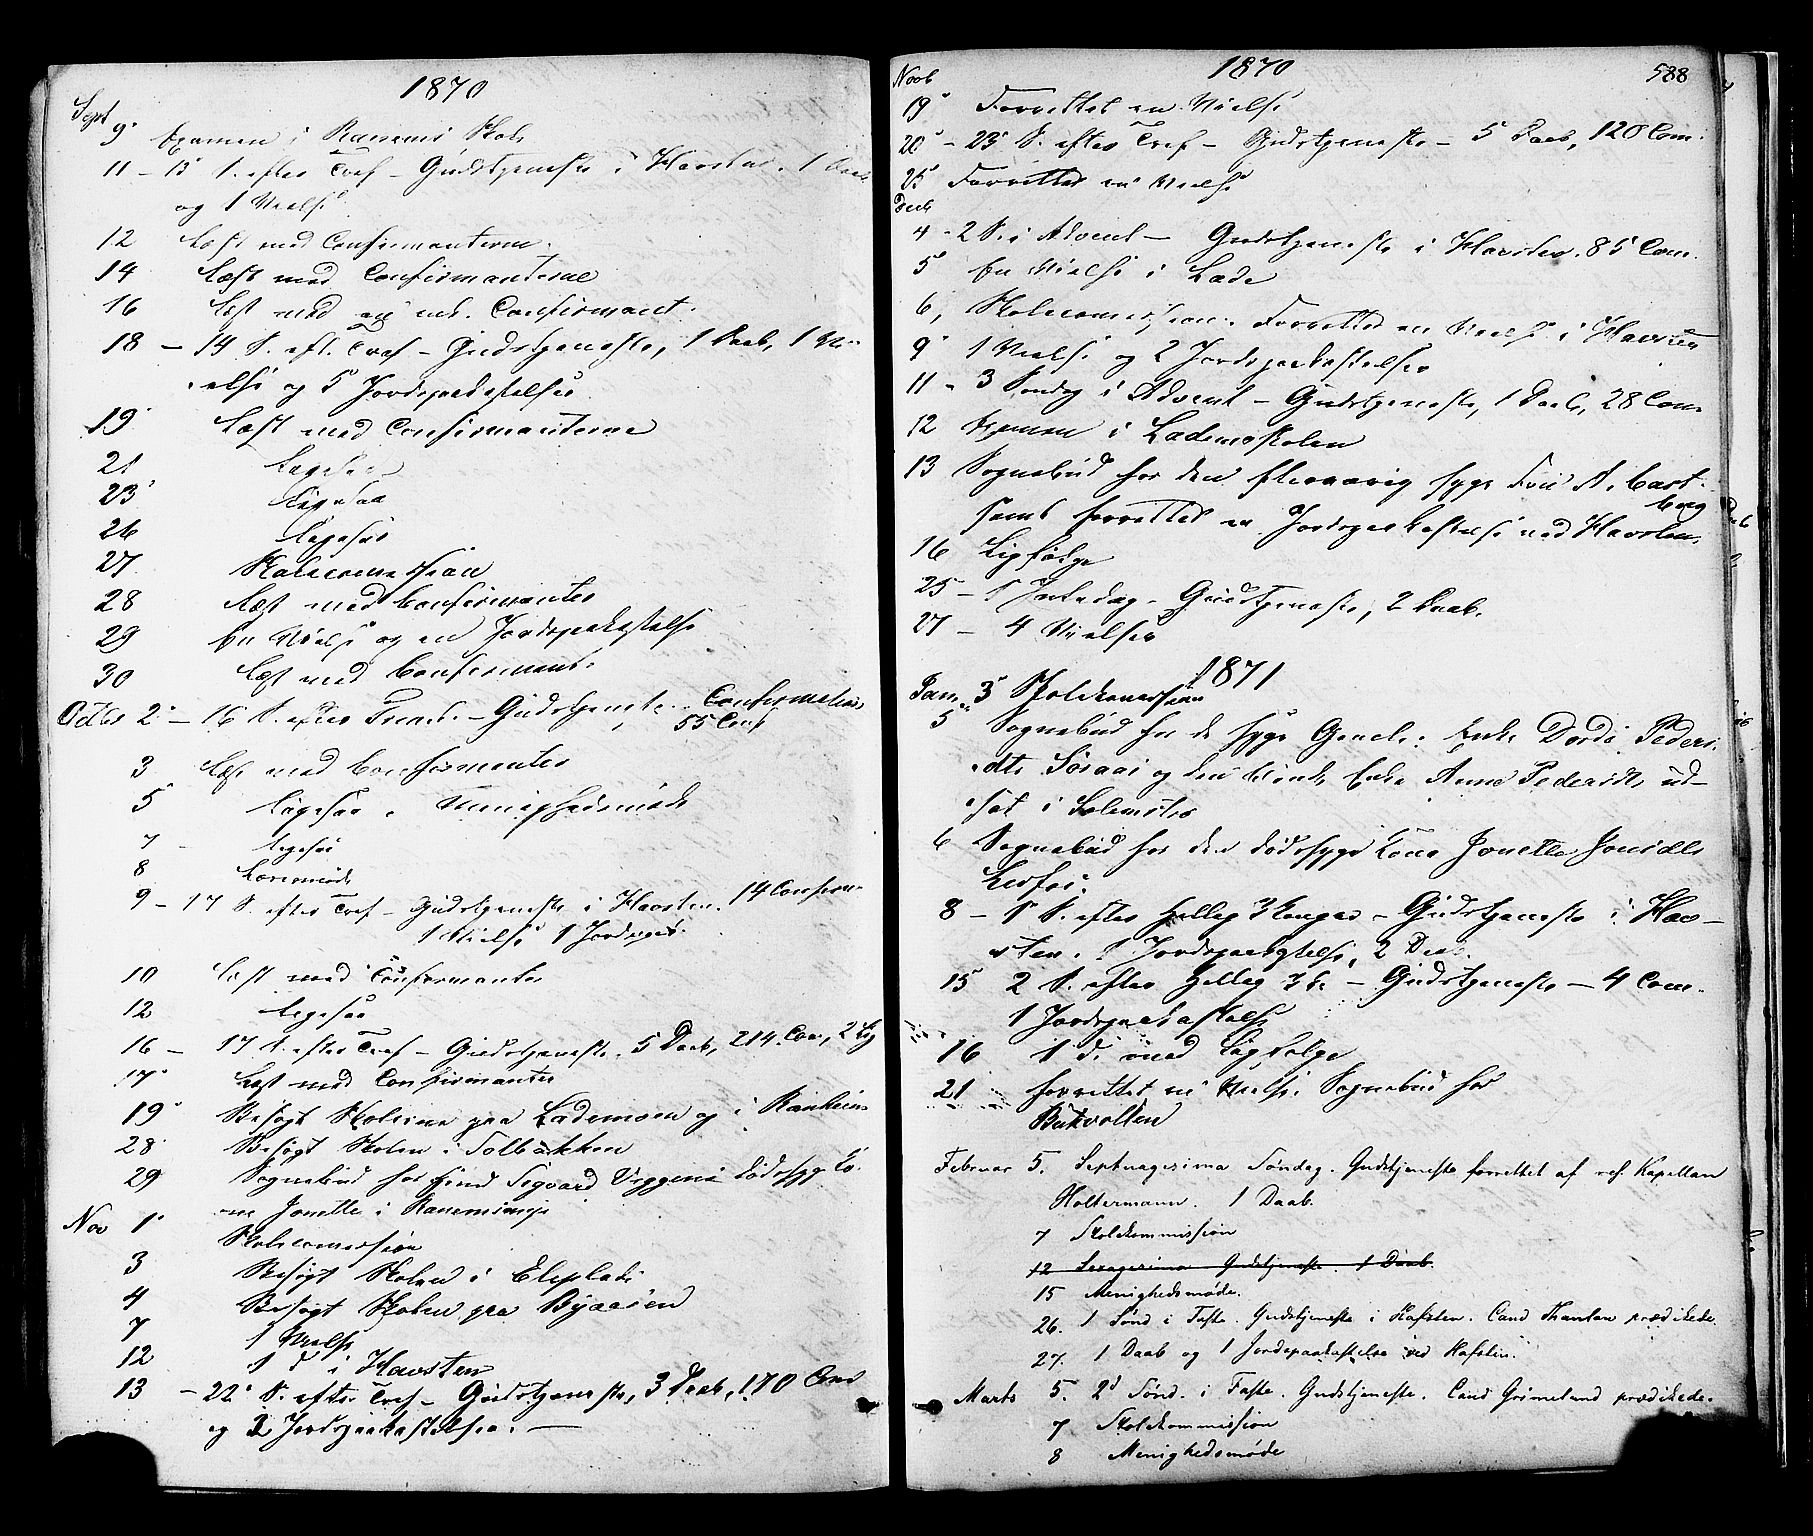 1870
Sept 9. Examen i Ranems Skole
11 - 13 S. efter Tref - Gudstjeneste i Havsten. 1 Daab
og 1 Vielse
12 Læst med Confirmanterne.
14 Læst med Confirmanterne
16 Læst med Confirmant.
18 - 14 S. eft. Tref - Gudstjeneste, 1 Daab, 1 Vi-
else og 5 Jordspaakastelser.
19 Læst med Confirmanterne
21 Ligesaa
23 Ligesaa
26 Ligesaa
27 Skolecommission
28 Læst med Confirmanter
29 En Vielse og en Jordspaakastelse
30 Læst med Confirmant.
Octbr 2. - 16 S. efter Trinit. - Gudstjeneste. Confirmation,
55 Conf
3 Læst med Confirmanter
5 Ligesaa. Menighedsmøde
7 Ligesaa
8 Lærermøde
9 - 17 S. efter Tref - Gudstjeneste i Havsten. 14 Confirm
1 Vielse 1 Jordspaa.
10 Læst med Confirmanter
12 Ligesaa
16 - 17 S. efter Tref - Gudstjeneste. 5 Daab, 214 Com, 2 Lig
17 Læst med Confirmanter
19 Besøgt Skolerne paa Lademoen og i Ranheim
28 Besøgt Skolen i Solbakken
29 Sognebud hos Sigvard Dødssyge Ko-
ne Jonette i
Nov 1. Skolecommission
3 Besøgt Skolen i Ilsplads
4 Besøgt Skolen paa Byaasen
7 1 Vielse
12 1 d i Havsten
13 - 22 S. efter Tref - Gudstjeneste, 3 Daab, 170 Com
og 2 Jordspaakastelser. -
1870
588
Novb
19 Forrettet en Vielse
20 - 23 S. efter Tref - Gudstjeneste - 5 Daab, 120 Com.
25 Forrettet en Vielse
Decb
4 - 2 S. i Advent - Gudstjeneste i Havsten. 85 Com.
5 En Vielse i Lade
6, Skolecomission. Forrettet en Vielse i Havsten
9 1 Vielse og 2 Jordspaakastelser
11 - 3 Søndag i Advent - Gudstjeneste, 1 Daab, 28 Com
12 Examen i Lademoskolen
13 Sognebud hos den syge Fru A. Cast-
berg
samt forrettet en Jordspaakastelse ved Havsten.
16 Ligfølge
25 - 1 Juledag - Gudstjeneste, 2 Daab.
27 - 4 Vielser
1871
Jan. 3 Skolekomission
5 Sognebud hos de syge Enke Dordi Peders-
dtr og den blinde Enke Anna Pedersdtr ud-
sat i
6 Sognebud hos den dødssyge Kone Jonette Jonsdtr
8 - 1 S. efter Hellig 3 Konger - Gudstjeneste i Hav-
sten. 1 Jordspaakastelse, 2 Daab.
15 2 S. efter Hellig 3 K. - Gudstjeneste - 4 Com.
1 Jordspaakastelse
16 1 d. med Ligfølge
21 forrettet en Vielse. Sognebud hos
Februar 5. Septuagesima Søndag. Gudstjeneste forrettet af res. Kapellan
Holtermann. 1 Daab.
7 Skolekommission
12 Sexagesima Gudstjeneste. 1 Daab.
15 Menighedsmøde.
26. 1 Sønd i Faste. Gudstjeneste i Hafsten. Cand Thanlan prædikede.
27. 1 Daab og 1 Jordspaakastelse ved Hafsten.
Marts 5. 2d Sønd. i Faste. Gudstjeneste. Cand Grimelund prædikede.
7 Skolekommission
8 Menighedsmøde